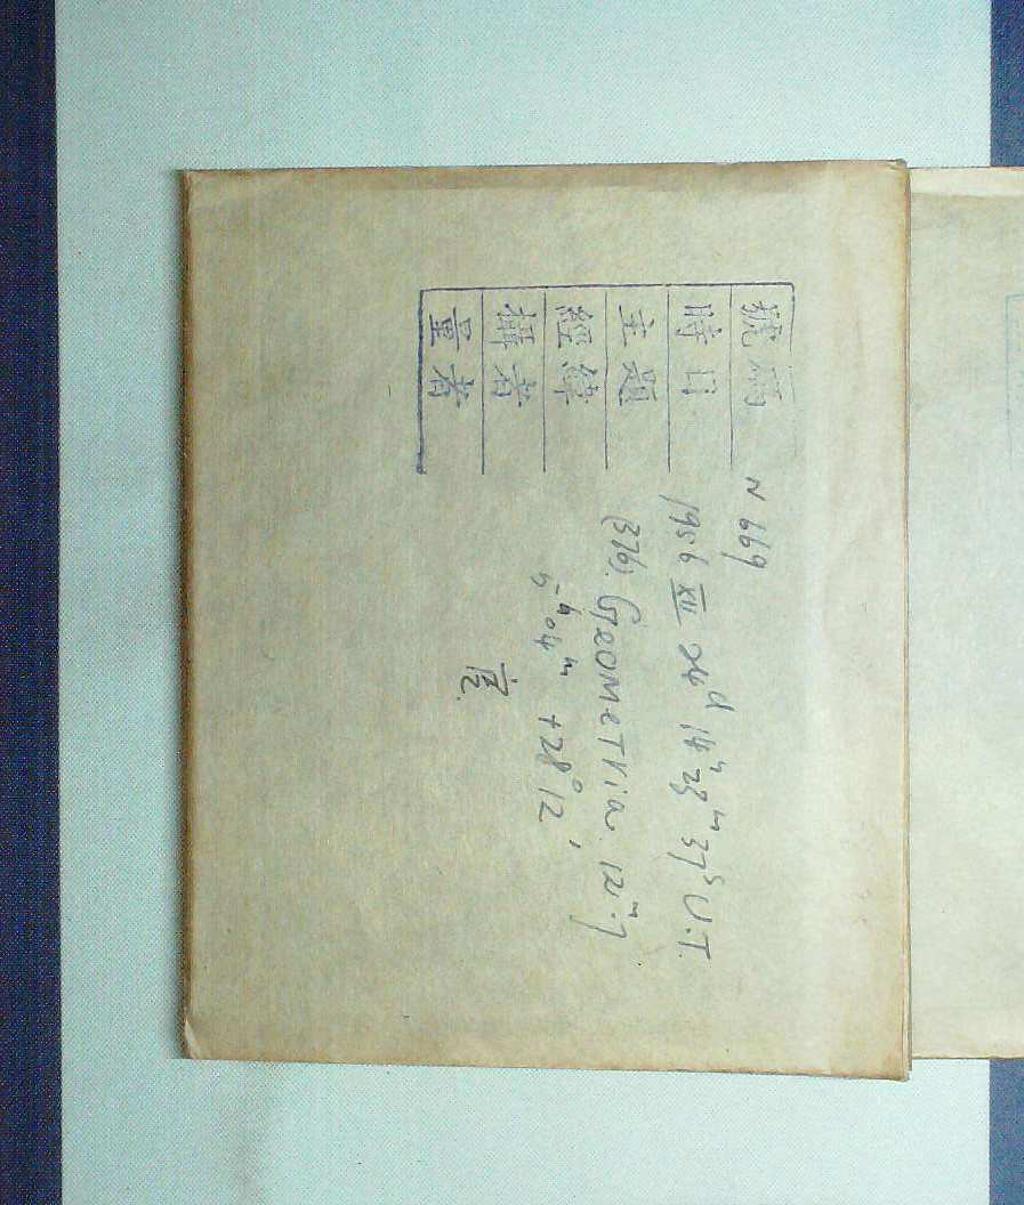 號碼 N 669
時日 1956 XII 24ᵈ 14ʰ 23ᵐ 37ˢ U.T.
主題 (376) Geometria. 12ᵐ.7
經緯 5ʰ04ᵐ +28°12′
攝者
量者